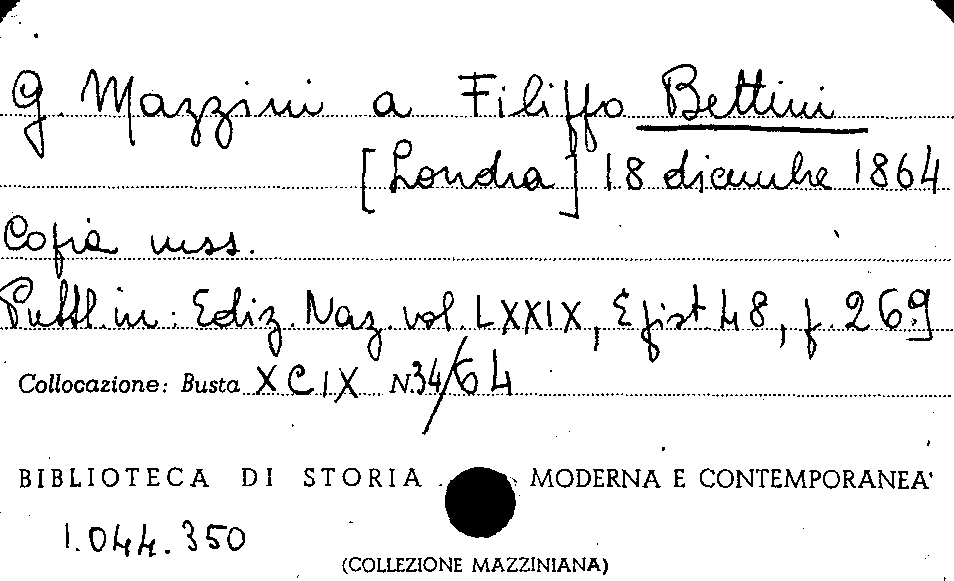 G. Mazzini a Filippo Bettini
[Londra] 18 dicembre 1864
Copia mss.
Pubbl. in: Ediz. Naz. vol. LXXIX, Epist. 48, p. 269
Collocazione: Busta XCIX N. 34/64
BIBLIOTECA DI STORIA MODERNA E CONTEMPORANEA
1.044.350
(COLLEZIONE MAZZINIANA)